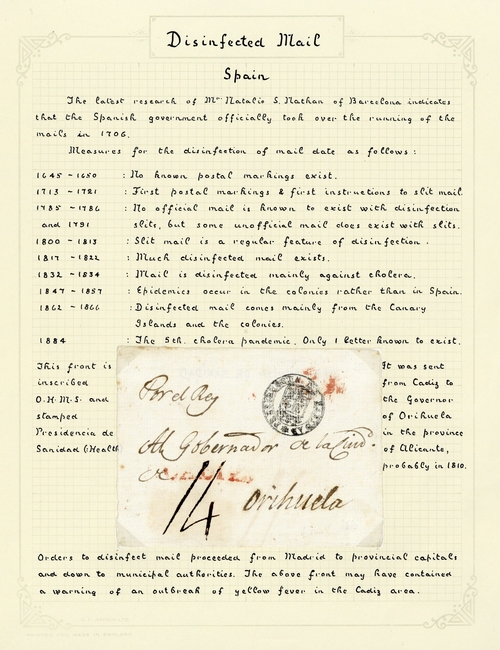 Disinfected Mail
Spain
The latest research of Mr Natalio S. Nathan of Barcelona indicates
that the Spanish government officially took over the running of the
mails in 1706.
Measures for the disinfection of mail date as follows :
1645 - 1650 : No known postal markings exist.
1713 - 1721 : First postal markings & first instructions to slit mail
1785 - 1786 : No official mail is known to exist with disinfection
and 1791 slits, but some unofficial mail does exist with slits.
1800 - 1813 : Slit mail is a regular feature of disinfection.
1817 - 1822 : Much disinfected mail exists.
1832 - 1834 : Mail is disinfected mainly against cholera.
1847 - 1857 : Epidemics occur in the colonies rather than in Spain.
1862 - 1866 : Disinfected mail comes mainly from the Canary
Islands and the colonies.
1884 : The 5th. cholera pandemic. Only 1 letter known to exist.
This front is
inscribed
O.H.M.S. and
stamped
Presidencia de
Sanidad (Health
Por el Rey
Al Gobernador de la Ciud.
de
14
Orihuela
It was sent
from Cadiz to
the Governor
of Orihuela
in the province
of Alicante,
probably in 1810.
Orders to disinfect mail proceeded from Madrid to provincial capitals
and down to municipal authorities. The above front may have contained
a warning of an outbreak of yellow fever in the Cadiz area.